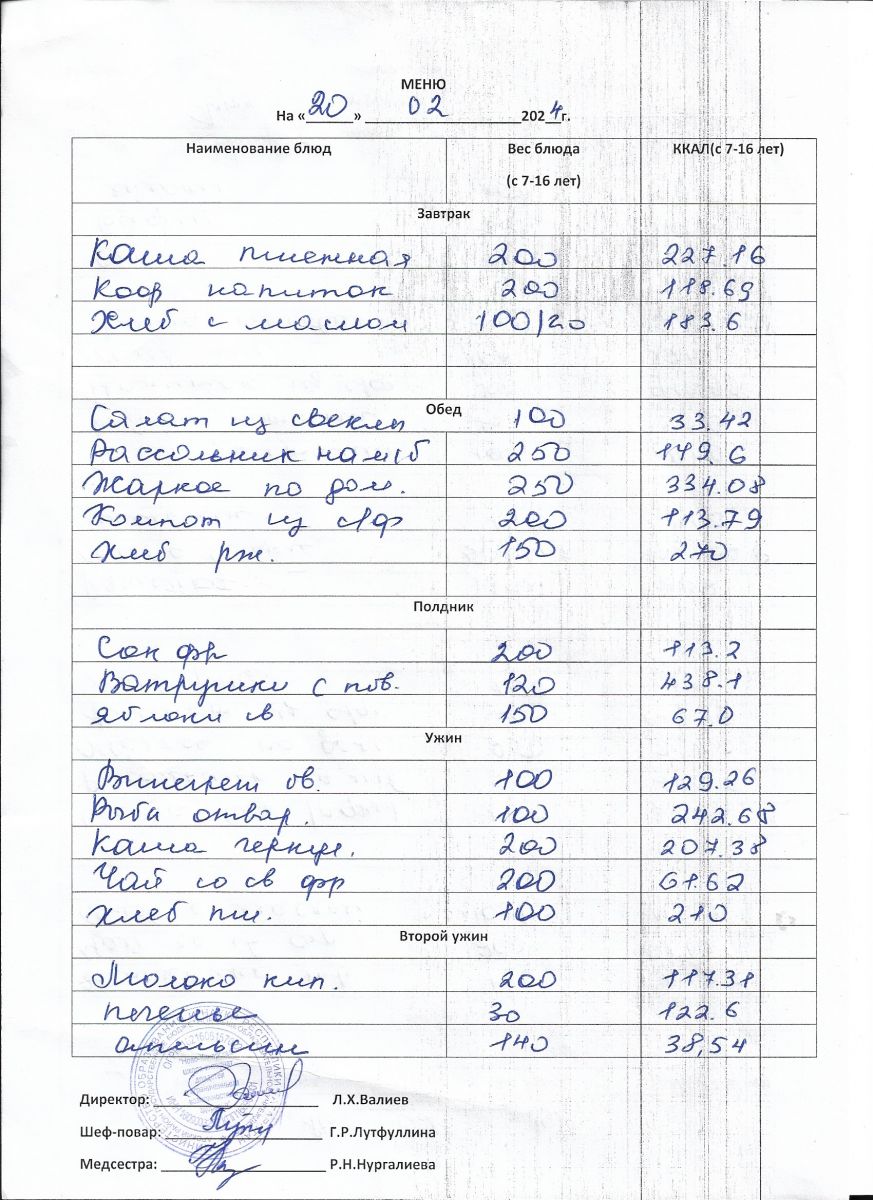 МЕНЮ
На «20» 02 2024г.
Наименование блюд Вес блюда ККАЛ(с 7-16 лет)
(с 7-16 лет)
Завтрак
Каша пшенная 200 227.16
Коф напиток 200 118.69
Хлеб с маслом 100/20 183.6
Обед
Салат из свеклы 100 33.42
Рассольник на м/б 250 149.6
Жаркое по дом. 250 334.08
Компот из с/ф 200 113.79
Хлеб рж. 150 270
Полдник
Сок фр 200 113.2
Ватрушки с пов. 120 438.1
Яблоки св 150 67.0
Ужин
Винегрет ов. 100 129.26
Рыба отвар. 100 242.68
Каша гречнев. 200 207.38
Чай со св фр 200 61.62
Хлеб пш. 100 210
Второй ужин
Молоко кип. 200 117.31
печенье 30 122.6
апельсин 140 38,54
Директор: Л.Х.Валиев
Шеф-повар: Г.Р.Лутфуллина
Медсестра: Р.Н.Нургалиева